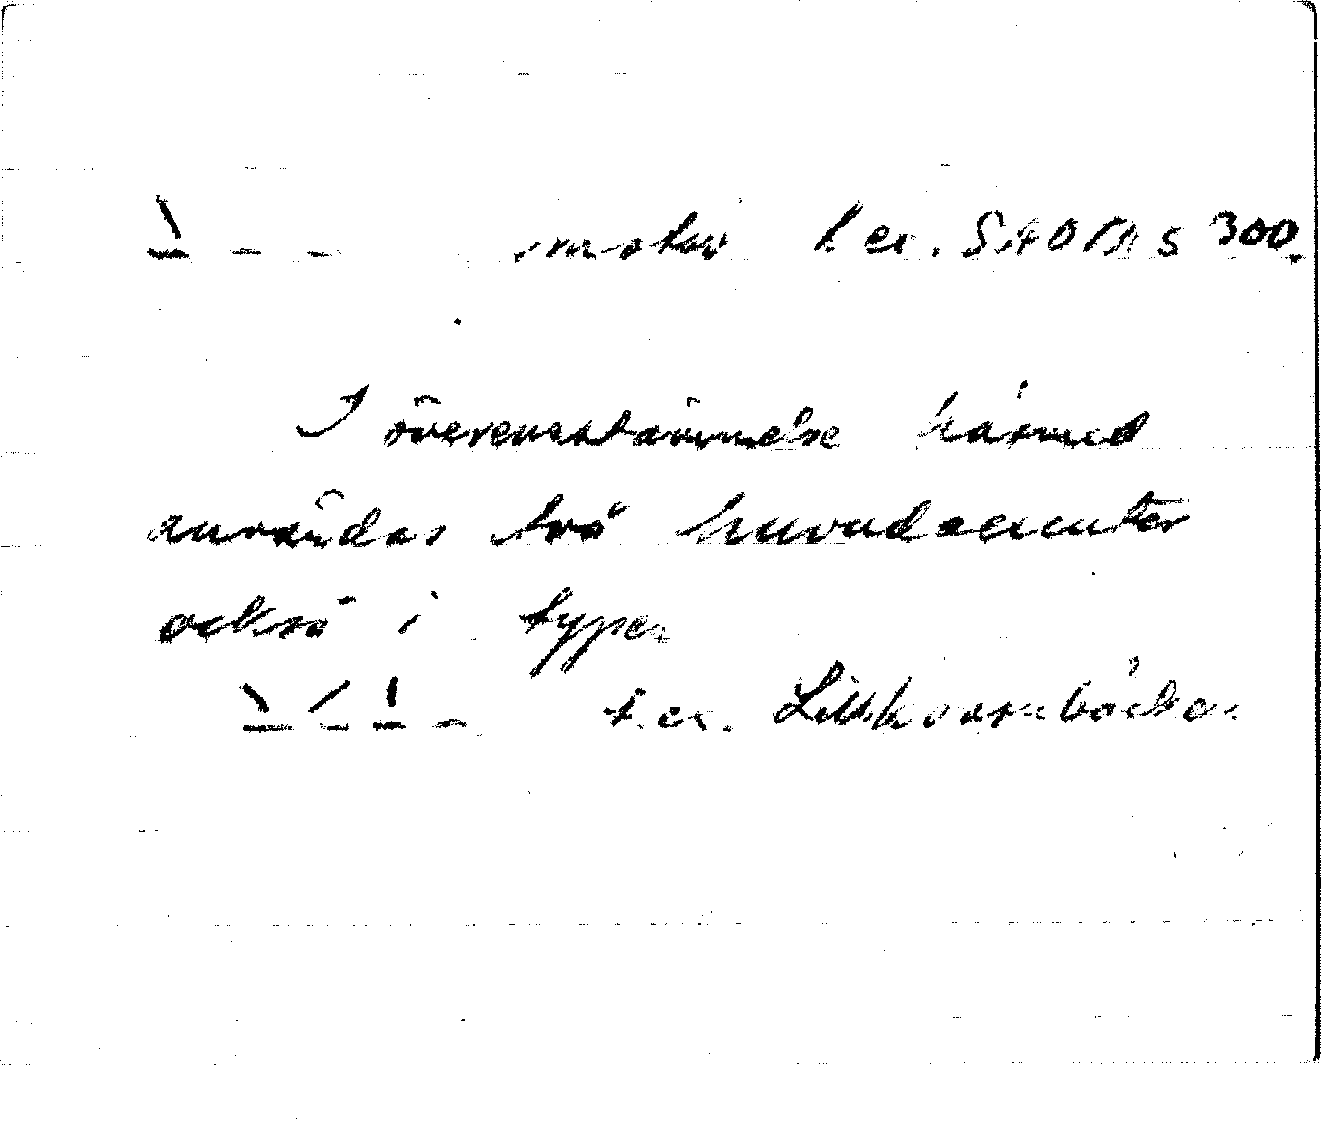 mot t. ex. SAOB s 300.
I överensstämmelse härmed
användas två huvudaccenter
också i typen
t. ex. Lillkvarnbäcken